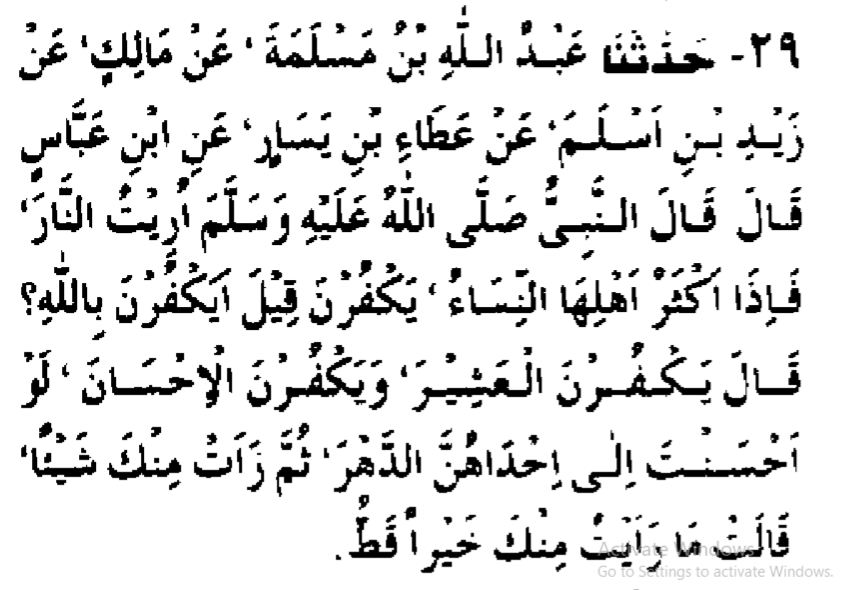 ٢٩- حَدَّثَنَا عَبْدُ اللّٰهِ بْنُ مَسْلَمَةَ ، عَنْ مَالِكٍ، عَنْ
زَيْدِ بْنِ اَسْلَمَ، عَنْ عَطَاءِ بْنِ يَسَارٍ، عَنِ ابْنِ عَبَّاسٍ
قَالَ قَالَ النَّبِيُّ صَلَّى اللّٰهُ عَلَيْهِ وَسَلَّمَ اُرِيْتُ النَّارَ،
فَاِذَا اَكْثَرُ اَهْلِهَا النِّسَاءُ ، يَكْفُرْنَ قِيْلَ اَيَكْفُرْنَ بِاللّٰهِ؟
قَالَ يَكْفُرْنَ الْعَشِيْرَ، وَيَكْفُرْنَ الْاِحْسَانَ ، لَوْ
اَحْسَنْتَ اِلٰى اِحْدَاهُنَّ الدَّهْرَ، ثُمَّ رَاَتْ مِنْكَ شَيْئًا،
قَالَتْ مَا رَاَيْتُ مِنْكَ خَيْراً قَطُّ.
Activate Windows
Go to Settings to activate Windows.